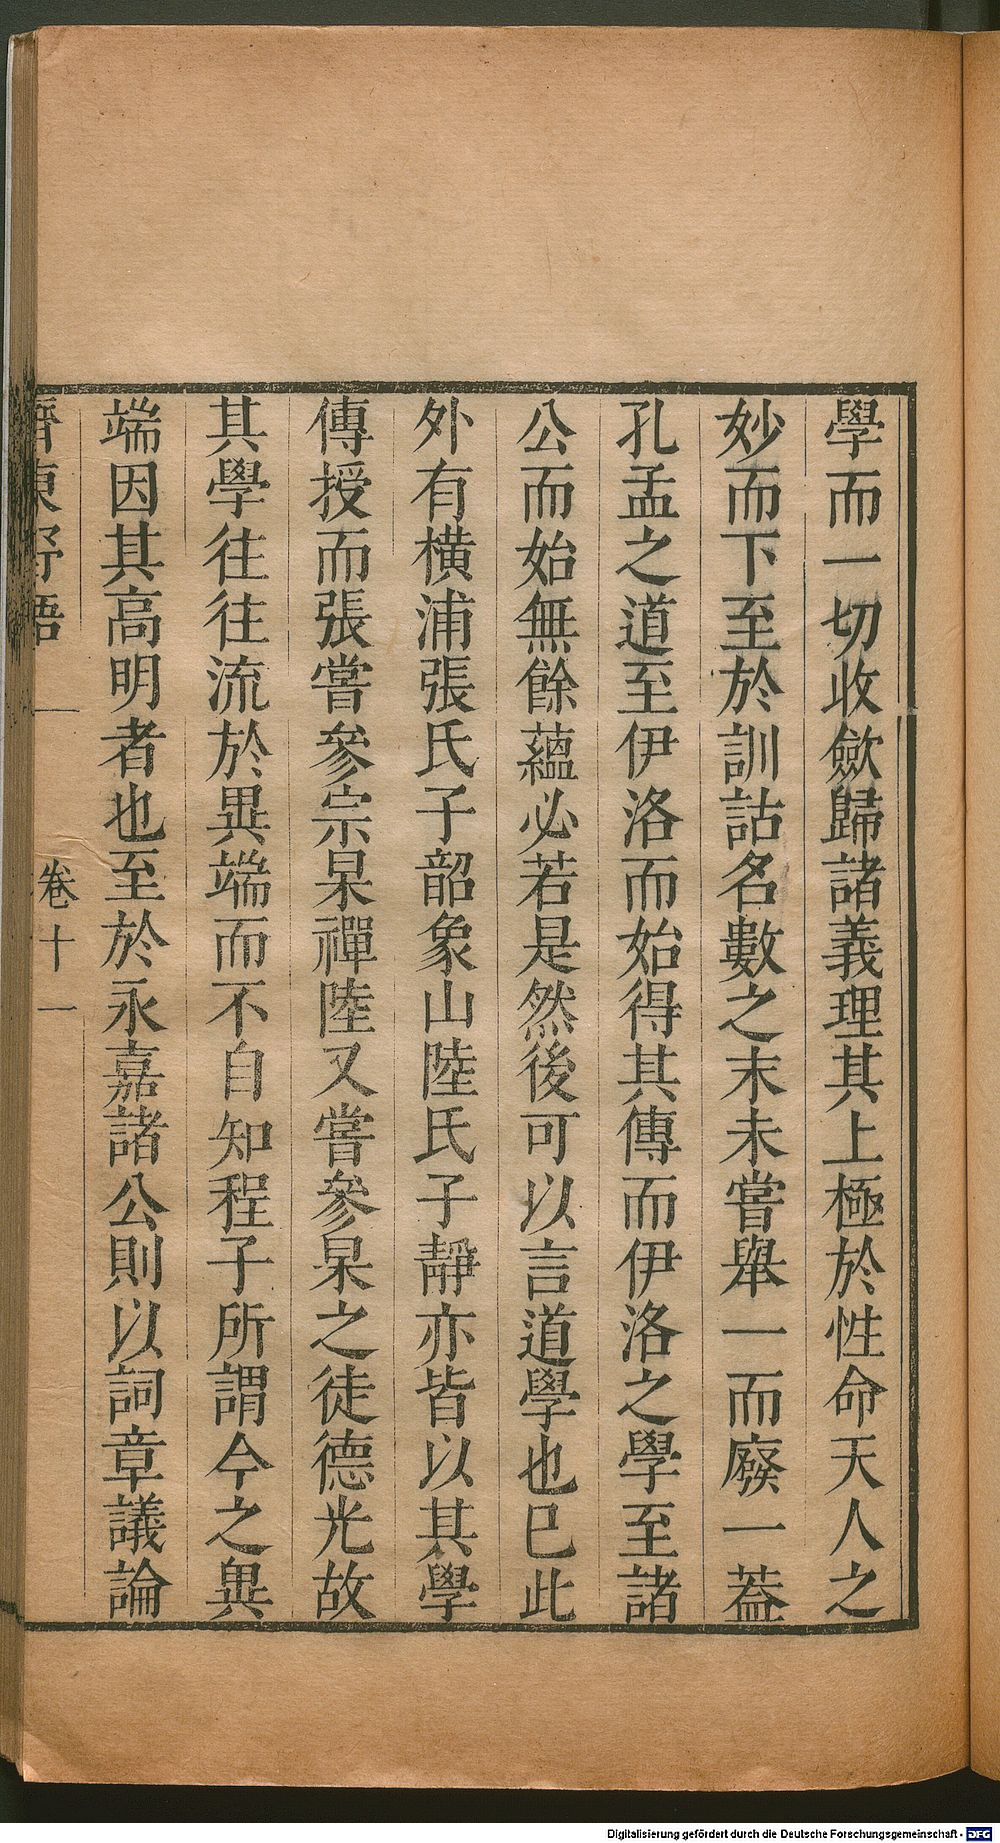 學而一切收歛歸諸義理其上極於性命天人之
妙而下至於訓詁名數之末未嘗舉一而廢一葢
孔孟之道至伊洛而始得其傳而伊洛之學至諸
公而始無餘蘊必若是然後可以言道學也已此
外有橫浦張氏子韶象山陸氏子靜亦皆以其學
傳授而張嘗參宗杲禪陸又嘗參杲之徒德光故
其學往往流於異端而不自知程子所謂今之異
端因其高明者也至於永嘉諸公則以詞章議論
齊東野語 卷十一
Digitalisierung gefördert durch die Deutsche Forschungsgemeinschaft - DFG